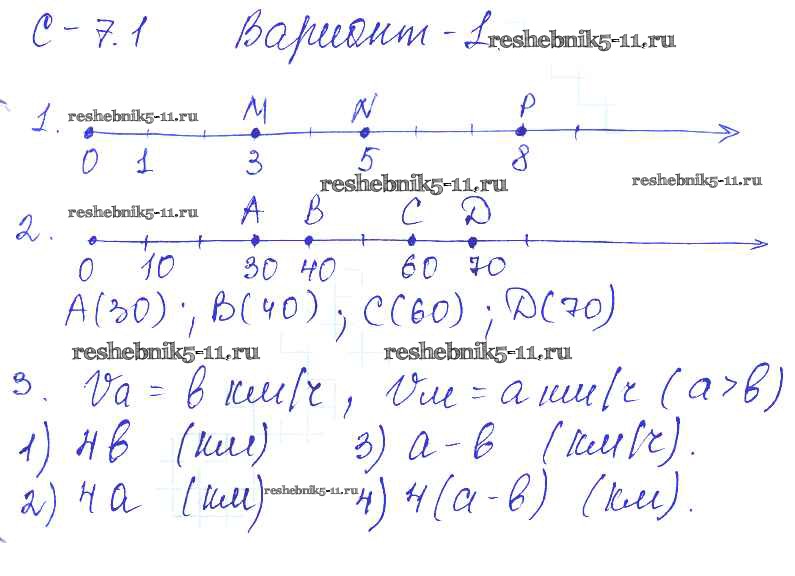 С-7.1 Вариант-1 reshebnik5-11.ru
reshebnik5-11.ru M N P
1.
0 1 3 5 8
reshebnik5-11.ru reshebnik5-11.ru
reshebnik5-11.ru A B C D
2.
0 10 30 40 60 70
A(30); B(40); C(60); D(70)
reshebnik5-11.ru reshebnik5-11.ru
3. Vа = в км/ч, Vм = а км/ч (а>в)
1) 4в (км) 3) а-в (км/ч).
2) 4а (км) reshebnik5-11.ru 4) 4(а-в) (км).